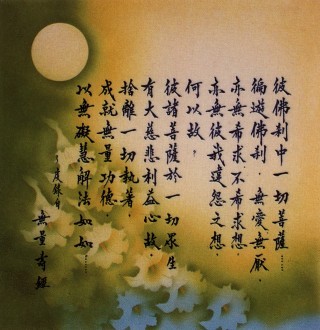 彼佛剎中一切菩薩……
徧遊佛剎,無愛無厭,
亦無希求不希求想,
亦無彼我違怨文想,
何以故,
彼諸菩薩於一切眾生
有大慈悲利益心故,
捨離一切執著,
成就無量功德,
以無礙慧解法如如……
無量壽經